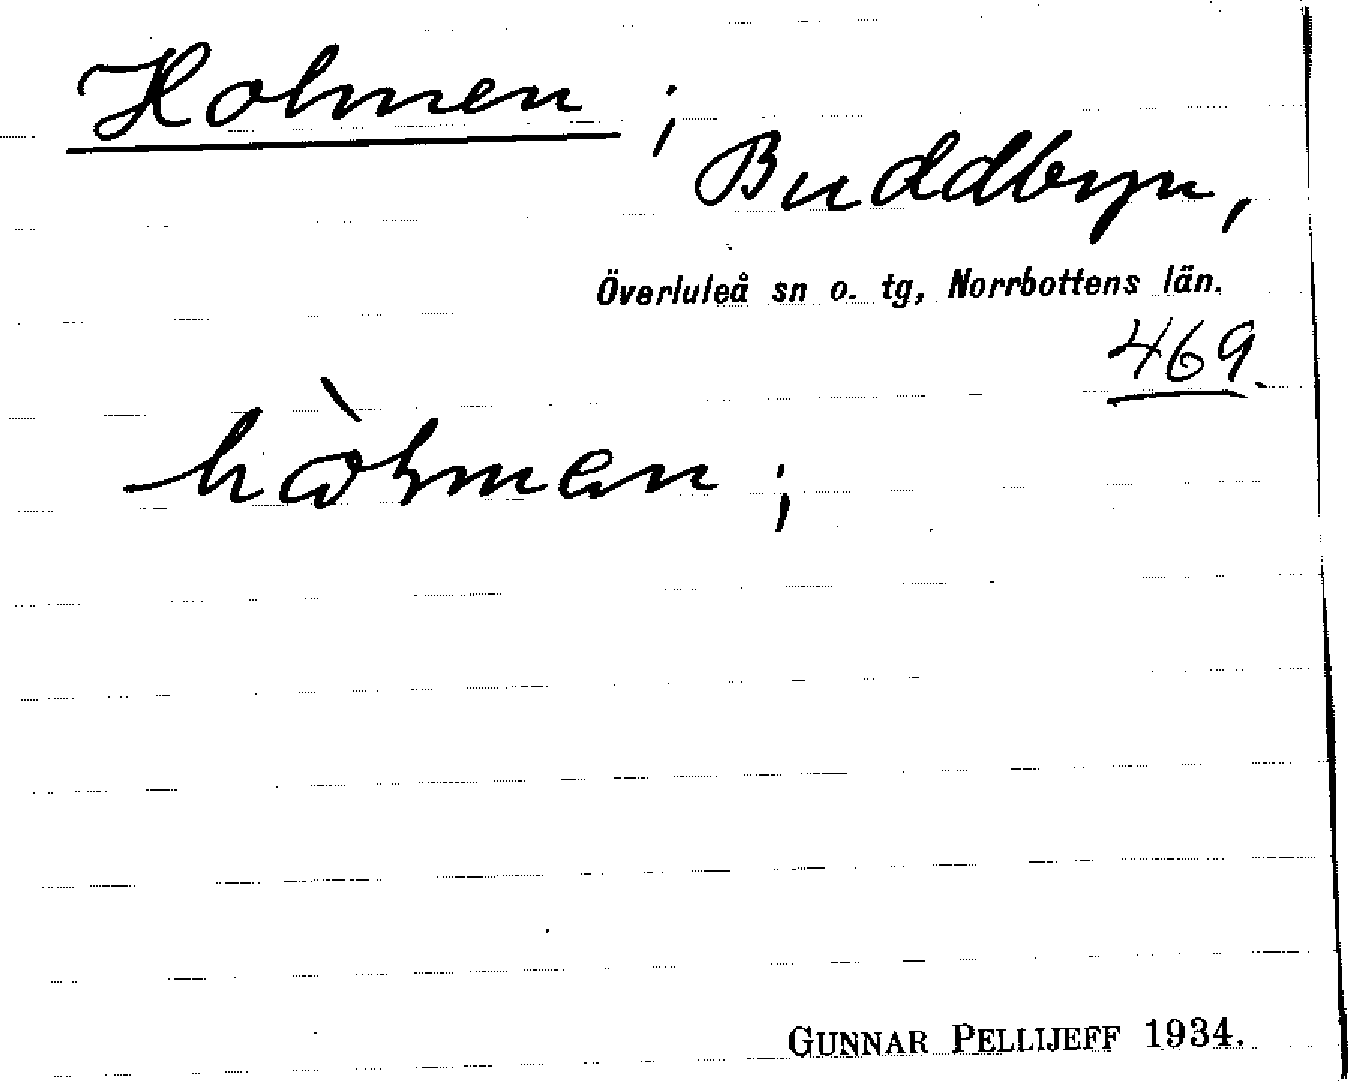 Holmen ;
Buddbyn,
Överluleå sn o. tg, Norrbottens län.
469.
GUNNAR PELLIJEFF 1934.